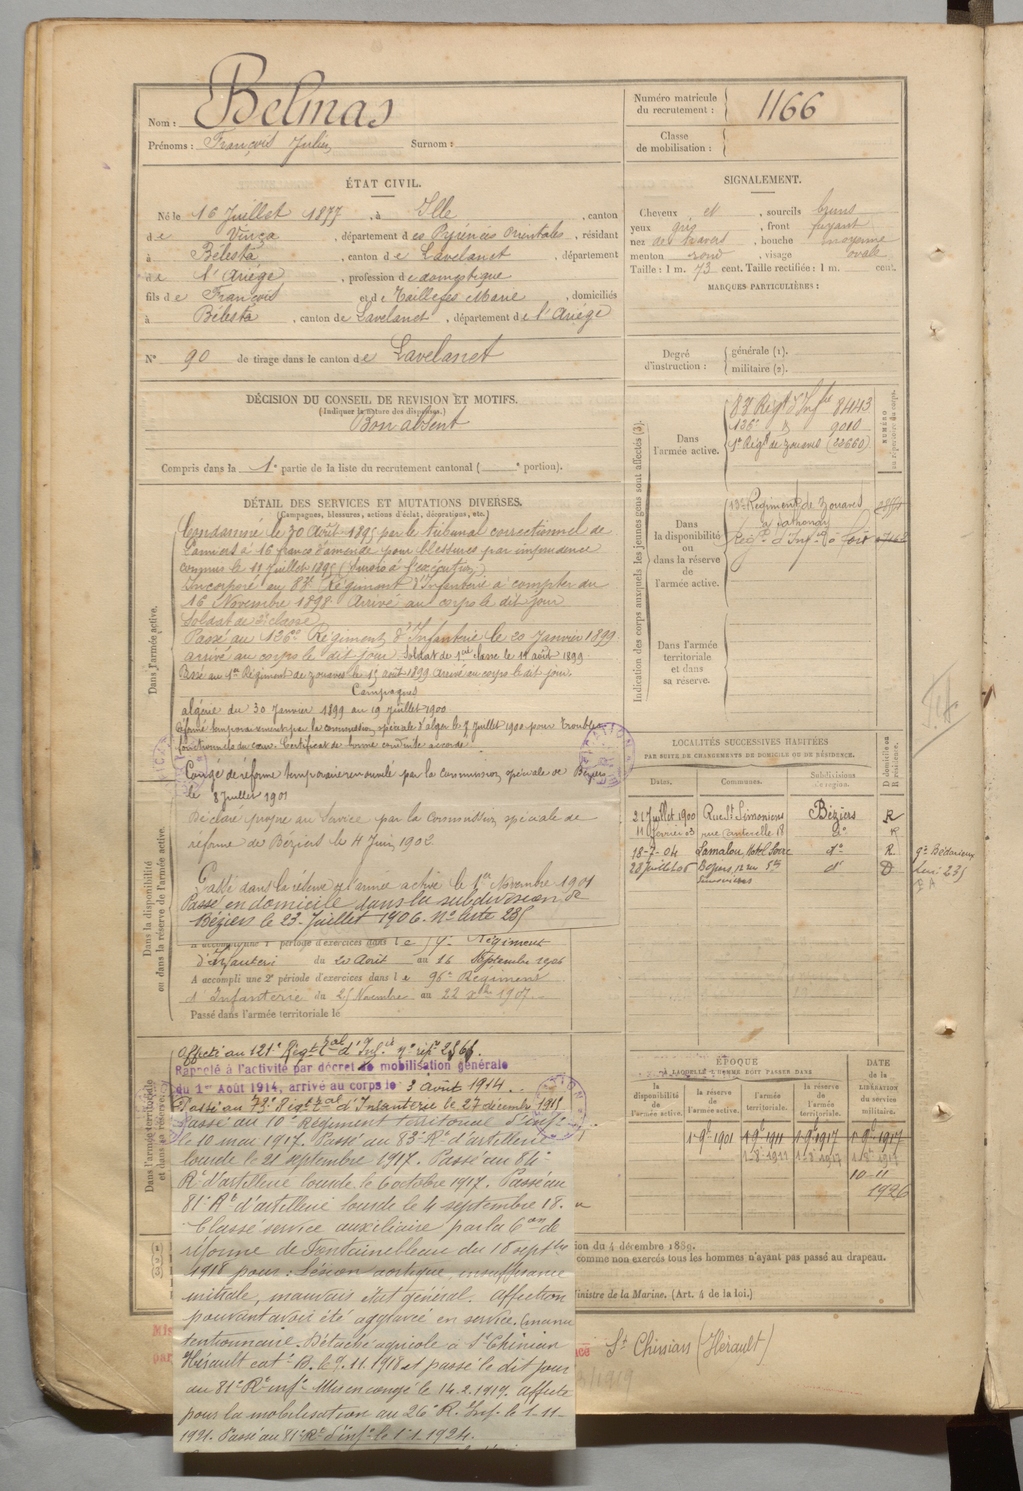 Nom : Belmas
Prénoms : François Julien Surnom :
Numéro matricule
du recrutement : 1166
Classe
de mobilisation :
ÉTAT CIVIL.
Né le 16 Juillet 1877, à Ille, canton
de Vinça, département des Pyrénées Orientales, résidant
à Bélesta, canton de Lavelanet, département
de l'Ariège, profession de domestique
fils de François et de Taillefer Marie, domiciliés
à Bélesta, canton de Lavelanet, département de l'Ariège
N° 90 de tirage dans le canton de Lavelanet
SIGNALEMENT.
Cheveux et, sourcils bruns
yeux gris, front fuyant
nez de travers, bouche moyenne
menton rond, visage ovale
Taille : 1 m. 73 cent. Taille rectifiée : 1 m. cent.
MARQUES PARTICULIÈRES :
Degré
d'instruction :
générale (1).
militaire (2).
DÉCISION DU CONSEIL DE REVISION ET MOTIFS.
(Indiquer la nature des dispenses.)
Bon absent
Compris dans la 1e partie de la liste du recrutement cantonal ( e portion).
DÉTAIL DES SERVICES ET MUTATIONS DIVERSES.
(Campagnes, blessures, actions d'éclat, décorations, etc.)
Dans l'armée active.
Condamné le 30 Août 1895 par le tribunal correctionnel de
Pamiers à 16 francs d'amende pour blessures par imprudence
commises le 11 Juillet 1895 (Sursis à l'exécution)
Incorporé au 83e Régiment d'Infanterie à compter du
16 Novembre 1898. Arrivé au corps le dit jour
Soldat de 2e classe
Passé au 136e Régiment d'Infanterie le 20 Janvier 1899
arrivé au corps le dit jour Soldat de 1ere classe le 11 août 1899
Passé au 1er Régiment de zouaves le 15 août 1899 Arrivé au corps le dit jour.
Campagnes
algérie du 30 Janvier 1899 au 19 Juillet 1900
Réformé temporairement par la commission spéciale d'alger le 7 Juillet 1900 pour troubles
fonctionnels du cœur. Certificat de bonne conduite accordé
Congé de réforme temporaire renouvelé par la Commission spéciale de Béziers
le 8 Juillet 1901
Déclaré propre au Service par la Commission spéciale de
réforme de Béziers le 4 Juin 1902
Dans la disponibilité
ou dans la réserve de l'armée active.
Passé dans la réserve de l'armée active le 1er Novembre 1901
Passé en domicile dans la subdivision de
Béziers le 23 Juillet 1906. No liste 285
A accompli une 1e période d'exercices dans le Régiment
d'Infanterie du 20 Août au 16 Septembre 1906
A accompli une 2e période d'exercices dans le 96e Régiment
d'Infanterie du 25 Novembre au 22 xbre 1907
Passé dans l'armée territoriale le
Dans l'armée territoriale
et dans sa réserve.
Affecté au 121e Régt tal d'Infie
Rappelé à l'activité par décret de mobilisation générale
du 1er Août 1914, arrivé au corps le 3 Août 1914.
Passé au 73e Régt tal d'Infanterie le 27 décembre 1915
Passé au 10e Régiment territorial d'infie
le 10 mai 1917. Passé au 83e Rt d'artillerie
lourde le 21 septembre 1917. Passé au 84e
Rt d'artillerie lourde le 6 octobre 1917. Passé au
81e Rt d'artillerie lourde le 4 septembre 18.
Classé service auxiliaire par la Con de
réforme de Fontainebleau du 18 septbre
1918 pour : Lésion aortique, insuffisance
mitrale, mauvais état général. Affection
pouvant avoir été aggravée en service. (manu
tentionnaire. Détaché agricole à St Chinian
Hérault cat. B. le 9.11.1918 et passé le dit jour
au 81e Rt infie Mis en congé le 14.2.1919. Affecté
pour la mobilisation au 26e R. Inf. le 1.11
1921. Passé au 81e Rt d'inf. le 1.1.1924.
Indication des corps auxquels les jeunes gens sont affectés (3).
NUMÉRO
au répertoire du corps.
Dans
l'armée active.
83e Régt d'Infie 8443
136e d° 9010
1er Régt de zouaves (20660)
Dans
la disponibilité
ou
dans la réserve
de
l'armée active.
Régiment de zouaves
Régt d'Infie à
Dans l'armée
territoriale
et dans
sa réserve.
LOCALITÉS SUCCESSIVES HABITÉES
PAR SUITE DE CHANGEMENTS DE DOMICILE OU DE RÉSIDENCE.
Dates. Communes. Subdivisions de région. D domicile ou R résidence.
21 Juillet 1900 Rue St Simoniens Béziers R
11 février 03 rue Canterelle 18 d° R
18-7-04 Lamalou, Hotel d° R gie Bédarieux
28 Juillet 06 Béziers, 12 rue Sts Simoniens d° D
ÉPOQUE
À LAQUELLE L'HOMME DOIT PASSER DANS
la disponibilité de l'armée active.
la réserve de l'armée active.
l'armée territoriale.
la réserve de l'armée territoriale.
DATE
de la
LIBÉRATION
du service
militaire.
1er 9bre 1901 1er 9bre 1911 1er 9bre 1917 1er 9bre 1917
10-11
1926
ion du 4 décembre 1889.
comme non exercés tous les hommes n'ayant pas passé au drapeau.
Ministre de la Marine. (Art. 4 de la loi.)
St Chinian (Hérault)